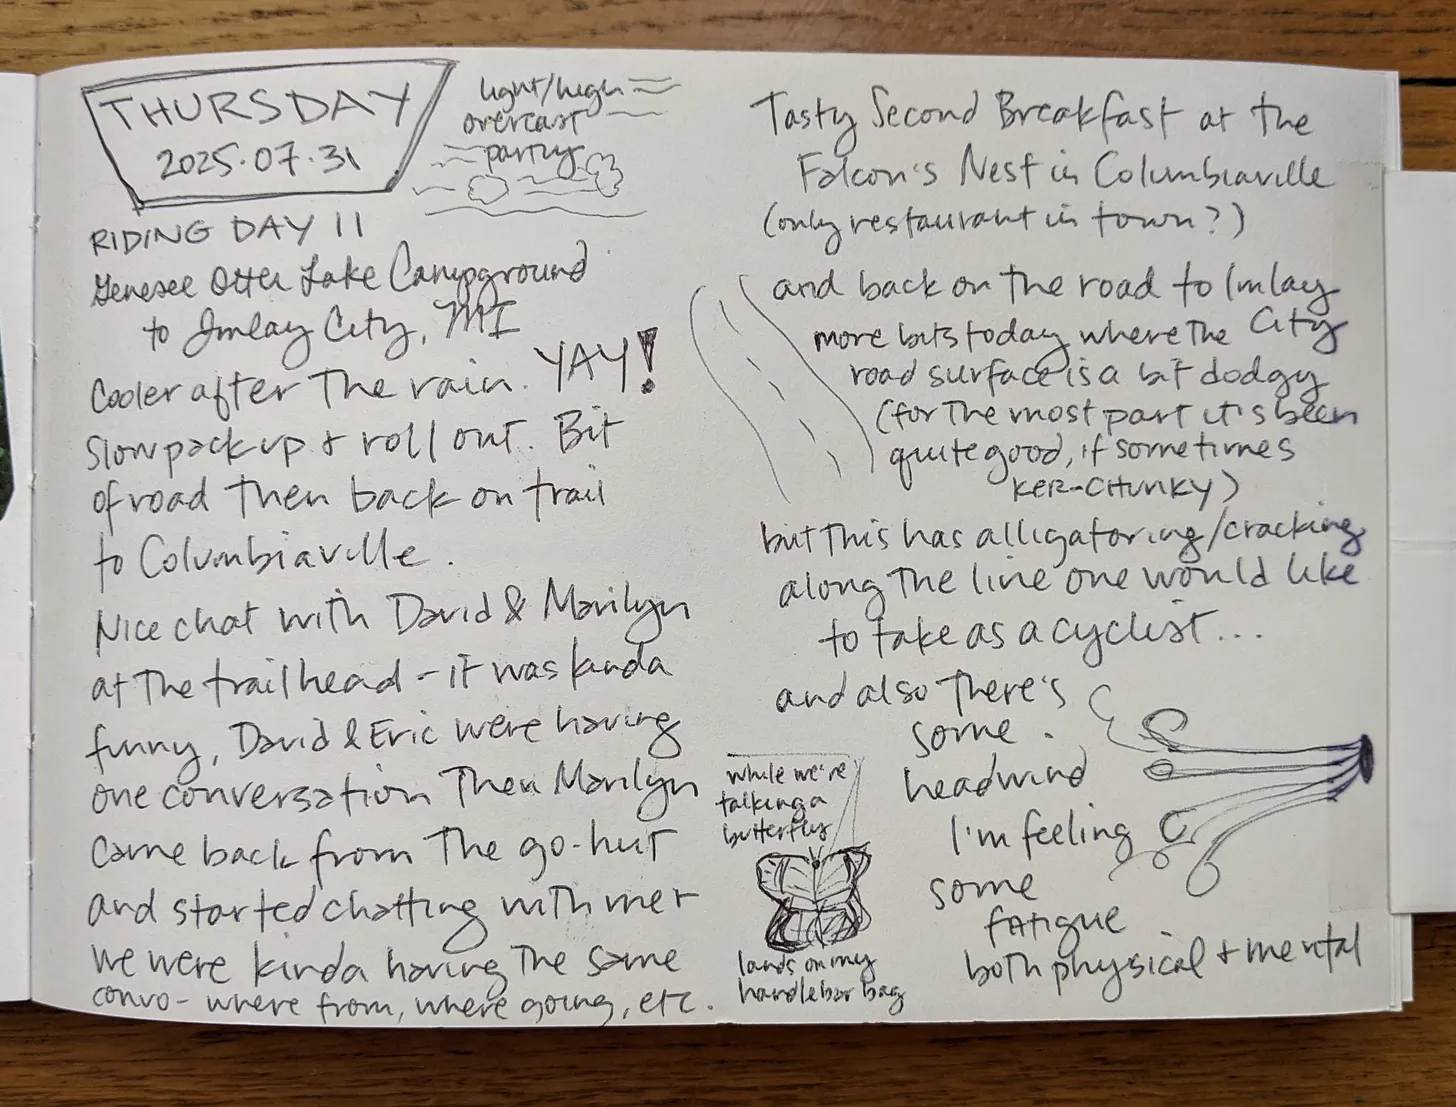 THURSDAY
2025.07.31
light/high
overcast
partly
RIDING DAY 11
Genesee Otter Lake Campground
to Imlay City, MI
Cooler after the rain. YAY!
Slow pack up + roll out. Bit
of road then back on trail
to Columbiaville.
Nice chat with David & Marilyn
at the trailhead - it was kinda
funny, David & Eric were having
one conversation then Marilyn
came back from the go-hut
and started chatting with me +
we were kinda having the same
convo - where from, where going, etc.
Tasty Second Breakfast at the
Falcon's Nest in Columbiaville
(only restaurant in town?)
and back on the road to Imlay
City
more bits today where the
road surface is a bit dodgy
(for the most part it's been
quite good, if sometimes
KER-CHUNKY)
but this has alligatoring/cracking
along the line one would like
to take as a cyclist...
and also there's
some
headwind
I'm feeling
some
fatigue
both physical + mental
while we're
talking a
butterfly
lands on my
handlebar bag